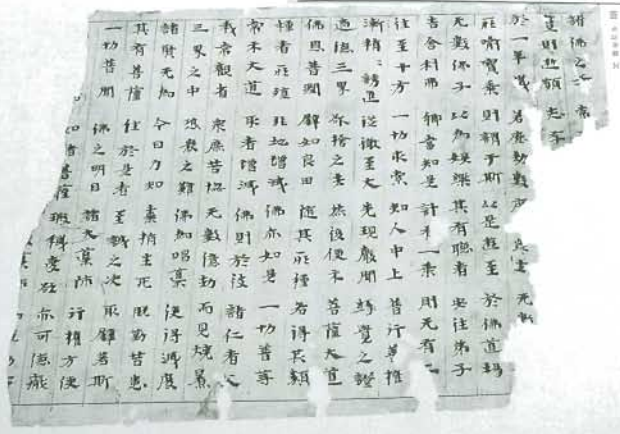 諸佛之 常
達則遊領 志存
於一 若 勤數 无斯
莊嚴寶乘 則朝于斯 以是遊至 於佛道場
无數佛子 以為娛樂 其有聽者 安住弟子
告舍利弗 卿當知是 計有一乘 則无有二
往至十方 一切求索 知人中上 普行善權
漸稍誘進 從微至大 先現聲聞 緣覺之證
適德三界 欲捨之去 然後便示 菩薩大道
佛恩普潤 譬如良田 隨其所種 各得其類
種者所殖 非地增減 佛亦如是 一切普等
常示大道 取者增減 佛則於彼 諸仁者父
我常觀省 衆庶苦惱 无數億劫 而見燒煮
三界之中 恐畏之難 佛為唱導 使得滅度
諸賢无為 今日乃知 捎生死 脫勤苦患
其有菩薩 住於是者 至誠之決 取 若斯
一切普聞 佛之明目 諸大 師 行權方便
如諸菩薩 瑕穢愛欲 亦可